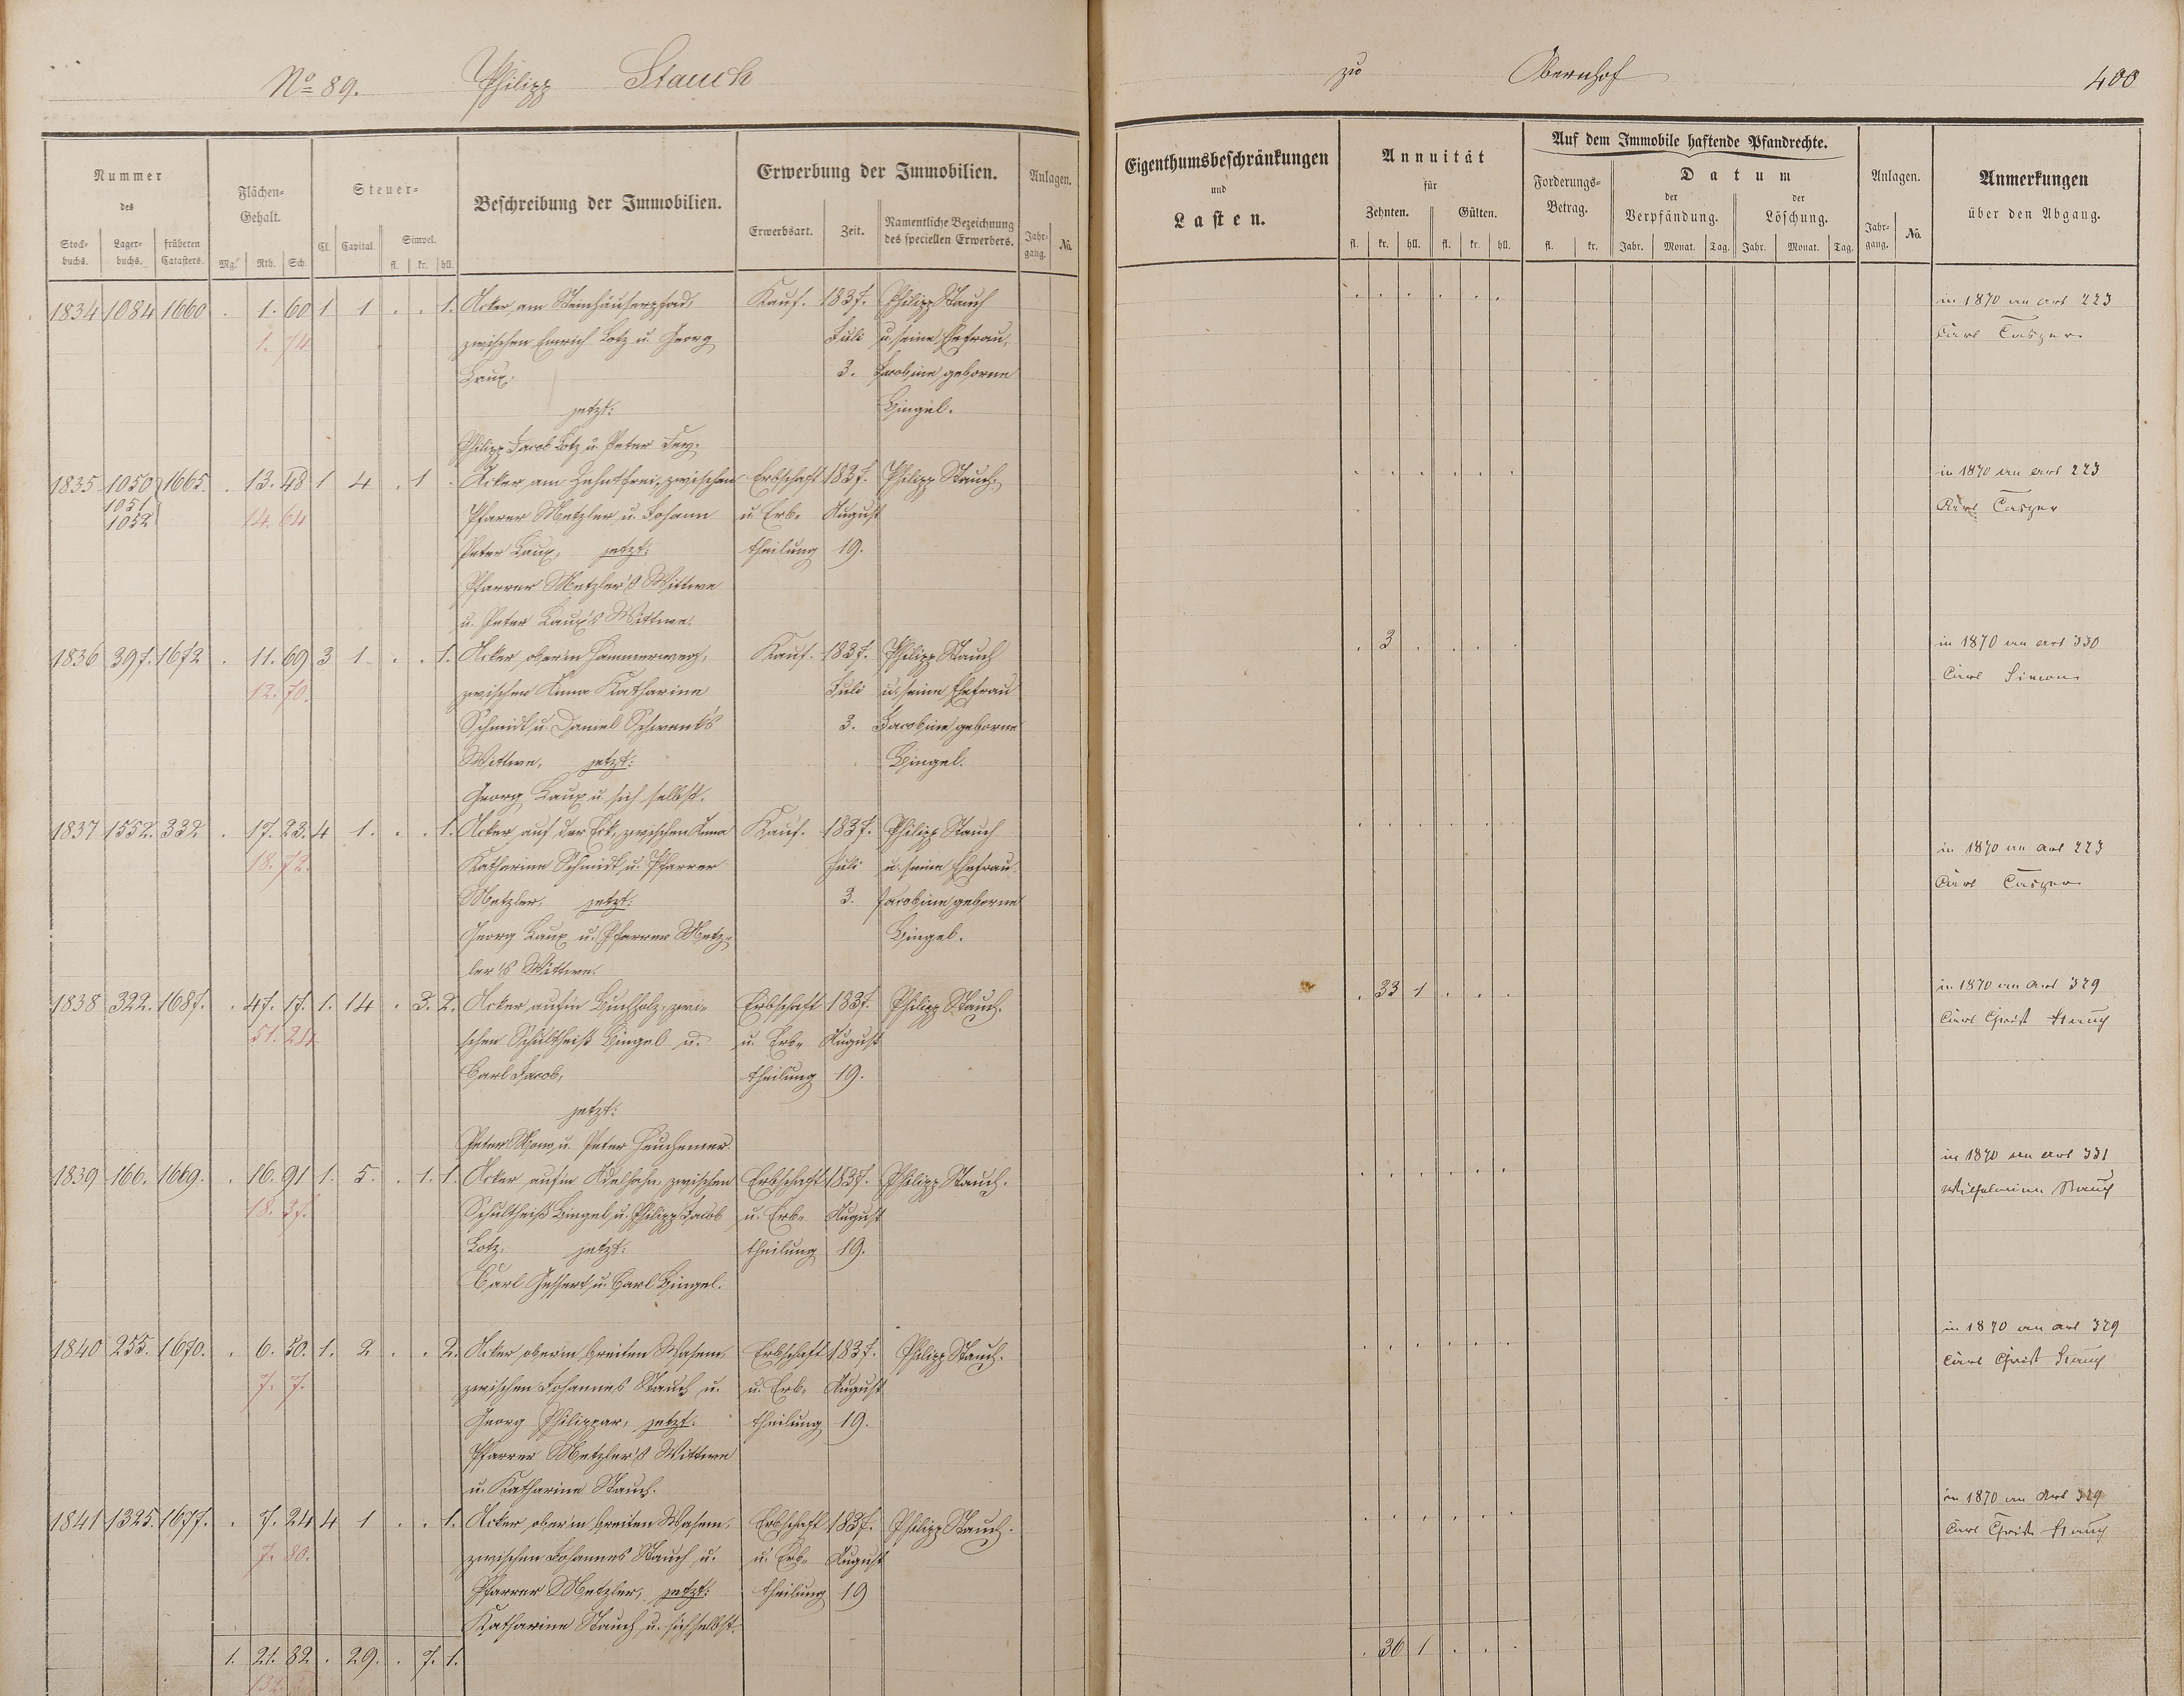 No 89. Philipp Stauch
zu Obernhof 400
Nummer des
Stockbuchs. Lagerbuchs. früheren Catasters.
Flächen-Gehalt.
Mg. Rth. Sch.
Steuer-
Cl. Capital. Simpel.
fl. kr. hll.
Beschreibung der Immobilien.
Erwerbung der Immobilien.
Erwerbsart. Zeit. Namentliche Bezeichnung des speciellen Erwerbers.
Anlagen.
Jahrgang. No.
Eigenthumsbeschränkungen
und
Lasten.
Annuität
für
Zehnten. Gülten.
fl. kr. hll. fl. kr. hll.
Auf dem Immobile haftende Pfandrechte.
Forderungs-Betrag.
fl. kr.
Datum
der Verpfändung. der Löschung.
Jahr. Monat. Tag. Jahr. Monat. Tag.
Anlagen.
Jahrgang. No.
Anmerkungen
über den Abgang.
1834 1084 1660 . 1. 60 1 1 . . 1. Acker am Steinhäuserpfad, Kauf. 1837. Philipp Stauch
1. 74 zwischen Emrich Lotz u. Georg Juli u. seine Ehefrau,
Laux. 3. Jacobine geborne
jetzt: Bingel.
Philipp Jacob Lotz u. Peter
in 1870 an Art 223
Carl Casper
1835 1050 1665. . 13. 48 1 4 . 1 . Acker am Zehntfrei, zwischen Erbschaft 1837. Philipp Stauch.
1051
1052 14. 64 Pfarrer Metzler u. Johann u. Erb- August
Peter Laux, jetzt: theilung 19.
Pfarrer Metzler's Wittwe
u. Peter Laux's Wittwe.
in 1870 an Art 223
Carl Casper
1836 397. 1672 . 11. 69 3 1 . . 1. Acker ober'm Hammerweg, Kauf. 1837. Philipp Stauch
12. 70. zwischen Anna Katharine Juli u. seine Ehefrau
Schmidt u. Daniel Schwenk's 3. Jacobine geborne
Wittwe, jetzt: Bingel.
Georg Laux u. sich selbst.
. 3 . . . .
in 1870 an Art 330
Carl Simon
1837 1552. 332 . 17. 23. 4 1. . . 1. Acker auf der Eck, zwischen Anna Kauf. 1837. Philipp Stauch
18. 72. Katharine Schmidt u. Pfarrer Juli u. seine Ehefrau
Metzler, jetzt: 3. Jacobine geborne
Georg Laux u. Pfarrer Metz- Bingel.
ler's Wittwe.
in 1870 an Art 223
Carl Casper
1838 322. 1687. . 47. 17. 1. 14 . 3. 2. Acker auf'm Buchholz, zwi- Erbschaft 1837. Philipp Stauch.
51. 24 schen Schultheiß Bingel u. u. Erb- August
Carl Jacob, theilung 19.
jetzt:
Peter u. Peter Heuchemer.
. 33 1 . . .
in 1870 an Art 329
Carl Christ Stauch
1839 166. 1669. . 16. 91 1. 5. . 1. 1. Acker auf'm zwischen Erbschaft 1837. Philipp Stauch.
18. 37. Schultheiß Bingel u. Philipp Jacob u. Erb- August
Lotz, jetzt: theilung 19.
Carl u. Carl Bingel.
in 1870 an Art 331
Wilhelmine Stauch
1840 255. 1670. . 6. 50. 1. 2 . . 2. Acker ober'm breiten Wasem, Erbschaft 1837. Philipp Stauch.
7. 7. zwischen Johannes Stauch u. u. Erb- August
Georg Philippar, jetzt: theilung 19.
Pfarrer Metzler's Wittwe
u. Katharine Stauch.
in 1870 an Art 329
Carl Christ Stauch
1841 1325. 1677. . 7. 24 4 1 . . 1. Acker ober'm breiten Wasem, Erbschaft 1837. Philipp Stauch.
7. 80. zwischen Johannes Stauch u. u. Erb- August
Pfarrer Metzler, jetzt: theilung 19
Katharine Stauch u. sich selbst.
in 1870 an Art 329
Carl Christ Stauch
1. 21. 82 . 29. . 7. 1.
. 36 1 . . .
132.